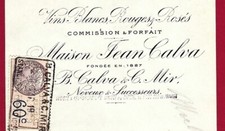 Vins Blancs, Rouges & Rosés
COMMISSION & FORFAIT
Maison Jean Calva
FONDÉE EN 1887
B. Calva & C. Mir,
Neveux & Successeurs
60